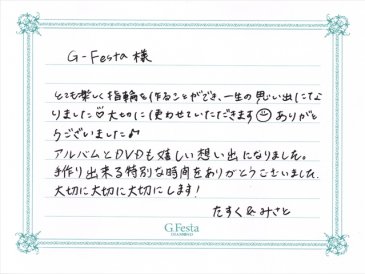 G-Festa 様
とても楽しく指輪を作ることができ、一生の思い出にな
りました♡大切に使わせていただきます☺ありがと
うございました♪
アルバムとDVDも嬉しい想い出になりました。
手作り出来る特別な時間をありがとうございました。
大切に大切に大切にします!
たすく&みさと
G.Festa
DIAMOND